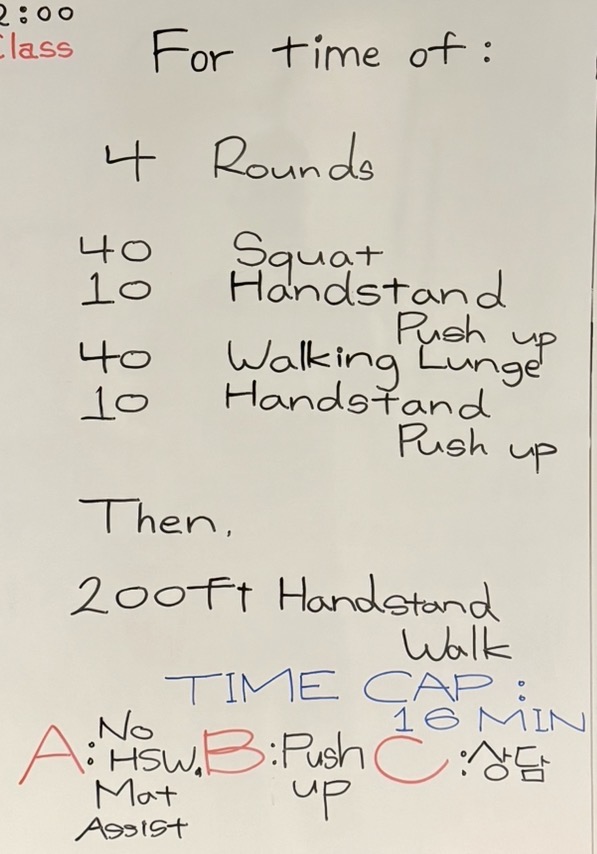 2:00
Class
For time of:
4 Rounds
40 Squat
10 Handstand
Push up
40 Walking Lunge
10 Handstand
Push up
Then,
200Ft Handstand
Walk
TIME CAP:
16 MIN
A: No HSW.
Mat
Assist
B: Push
up
C: 상담